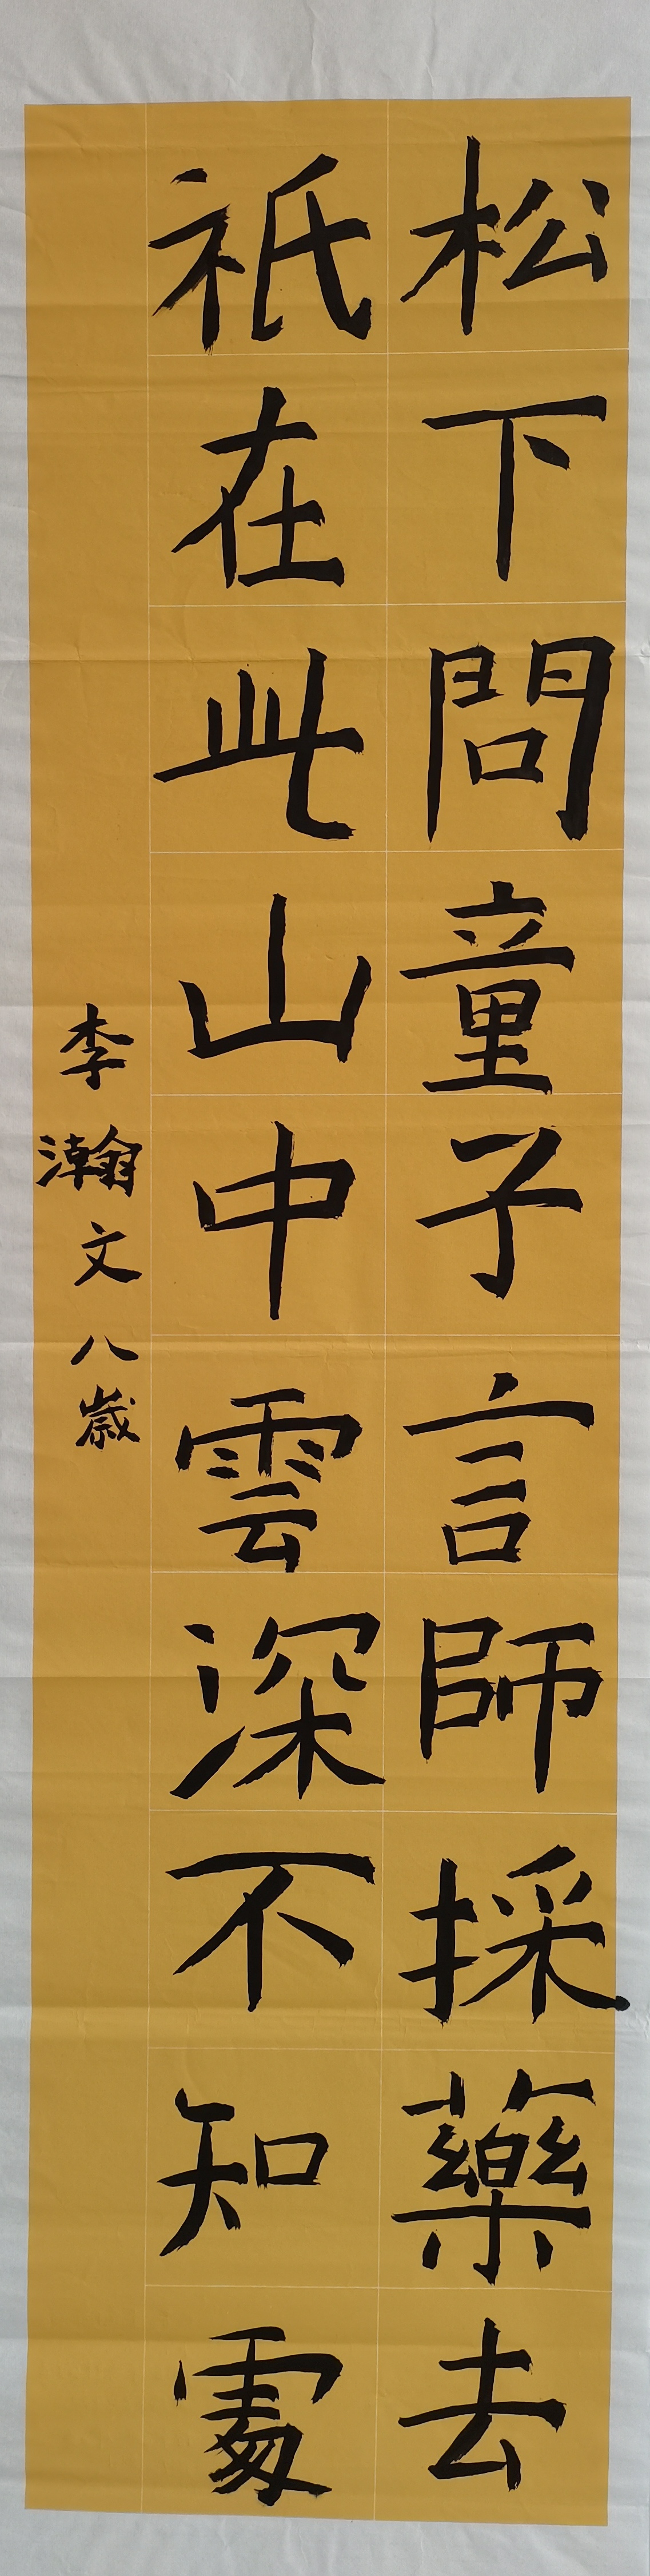 松下問童子言師採藥去
祇在此山中雲深不知處
李瀚文八歲